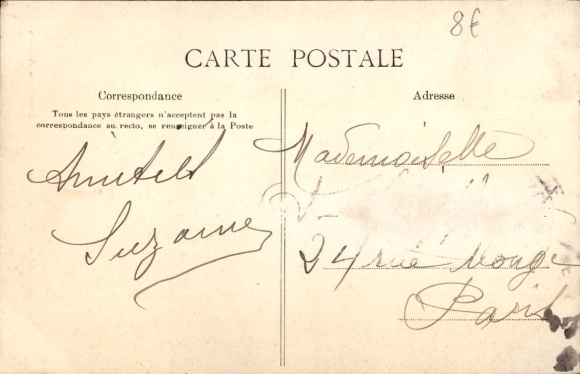 8€
CARTE POSTALE
Correspondance
Tous les pays étrangers n'acceptent pas la
correspondance au recto, se renseigner à la Poste
Amitiés
Suzanne
Adresse
Mademoiselle
24 rue Monge
Paris